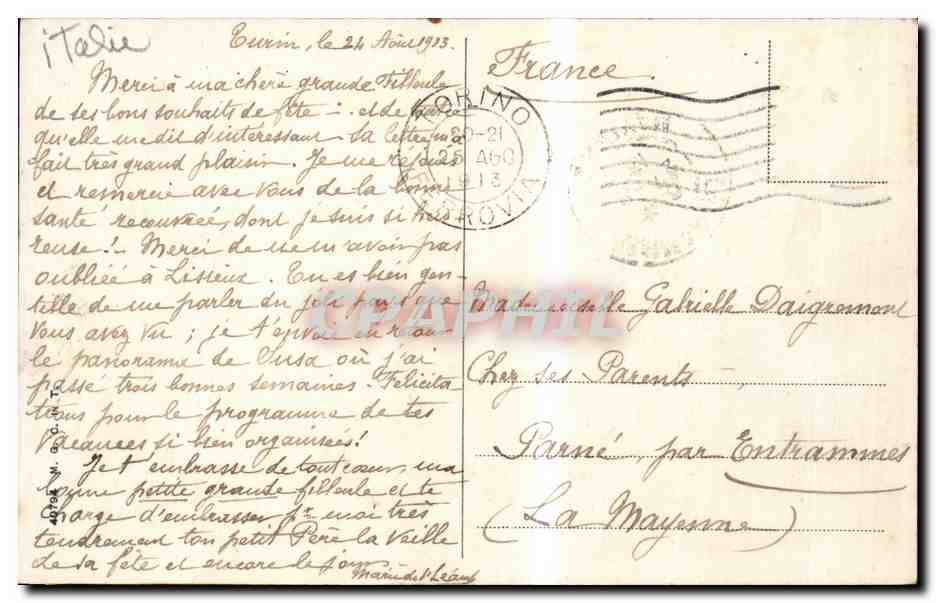 italie
Turin, le 24 Août 1913.
Merci à ma chère grande Filleule
de ses bons souhaits de fête – et de tout ce
qu'elle me dit d'intéressant. Sa lettre m'a
fait très grand plaisir. Je me réjouis
et remercie avec vous de la bonne
santé recouvrée, dont je suis si heu
reuse! – Merci de ne m'avoir pas
oubliée à Lisieux. Tu es bien gen-
tille de me parler du joli pays que
vous avez vu ; je t'envoie en retour
le panorama de Susa où j'ai
passé trois bonnes semaines. Félicita
tions pour le programme de tes
vacances si bien organisées!
Je t'embrasse de tout cœur, ma
bonne petite grande filleule et te
charge d'embrasser pr moi très
tendrement ton petit Père la veille
de sa fête et encore le jour
Marie de St Léauf
France.
TORINO
20-21
25 AGO
1913
FERROVIA
Mademoiselle Gabrielle Daigremont
Chez ses Parents
Parné, par Entrammes
(La Mayenne)
49794 M. G. C. IN TO
CPAPHIL